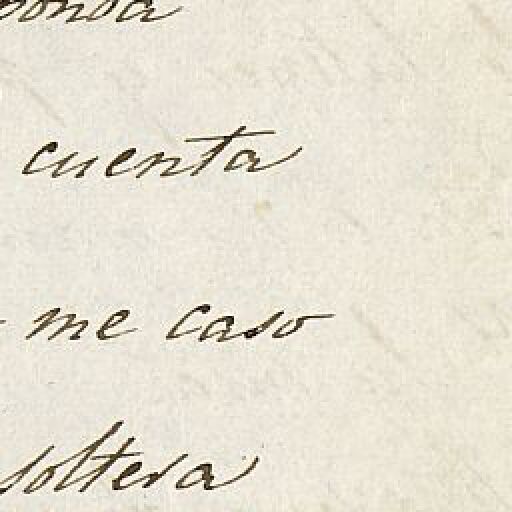 cuenta
me caso
soltera